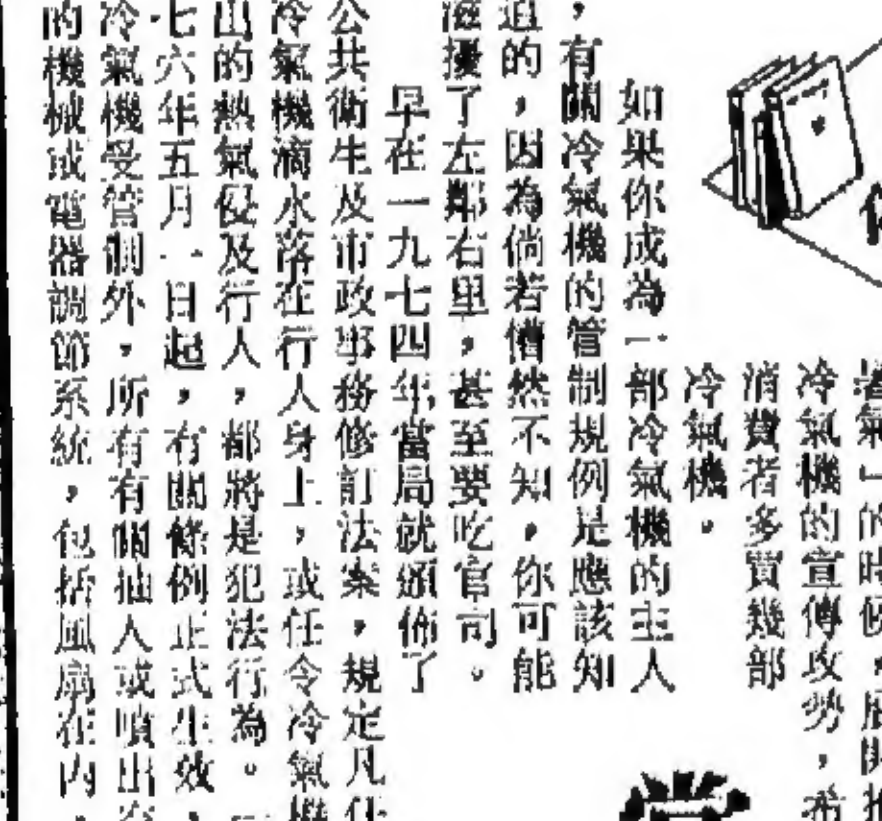 暑氣」的時候，展開推
冷氣機的宣傳攻勢，希
消費者多買幾部
冷氣機。
如果你成為一部冷氣機的主人
，有關冷氣機的管制規例是應該知
道的，因為倘若懵然不知，你可能
滋擾了左鄰右里，甚至要吃官司。
早在一九七四年當局就頒佈了
公共衞生及市政事務修訂法案，規定凡任
冷氣機滴水落在行人身上，或任令冷氣機
出的熱氣侵及行人，都將是犯法行為。一
七六年五月一日起，有關條例正式生效，
冷氣機受管制外，所有有關抽入或噴出空
的機械或電器調節系統，包括風扇在內，